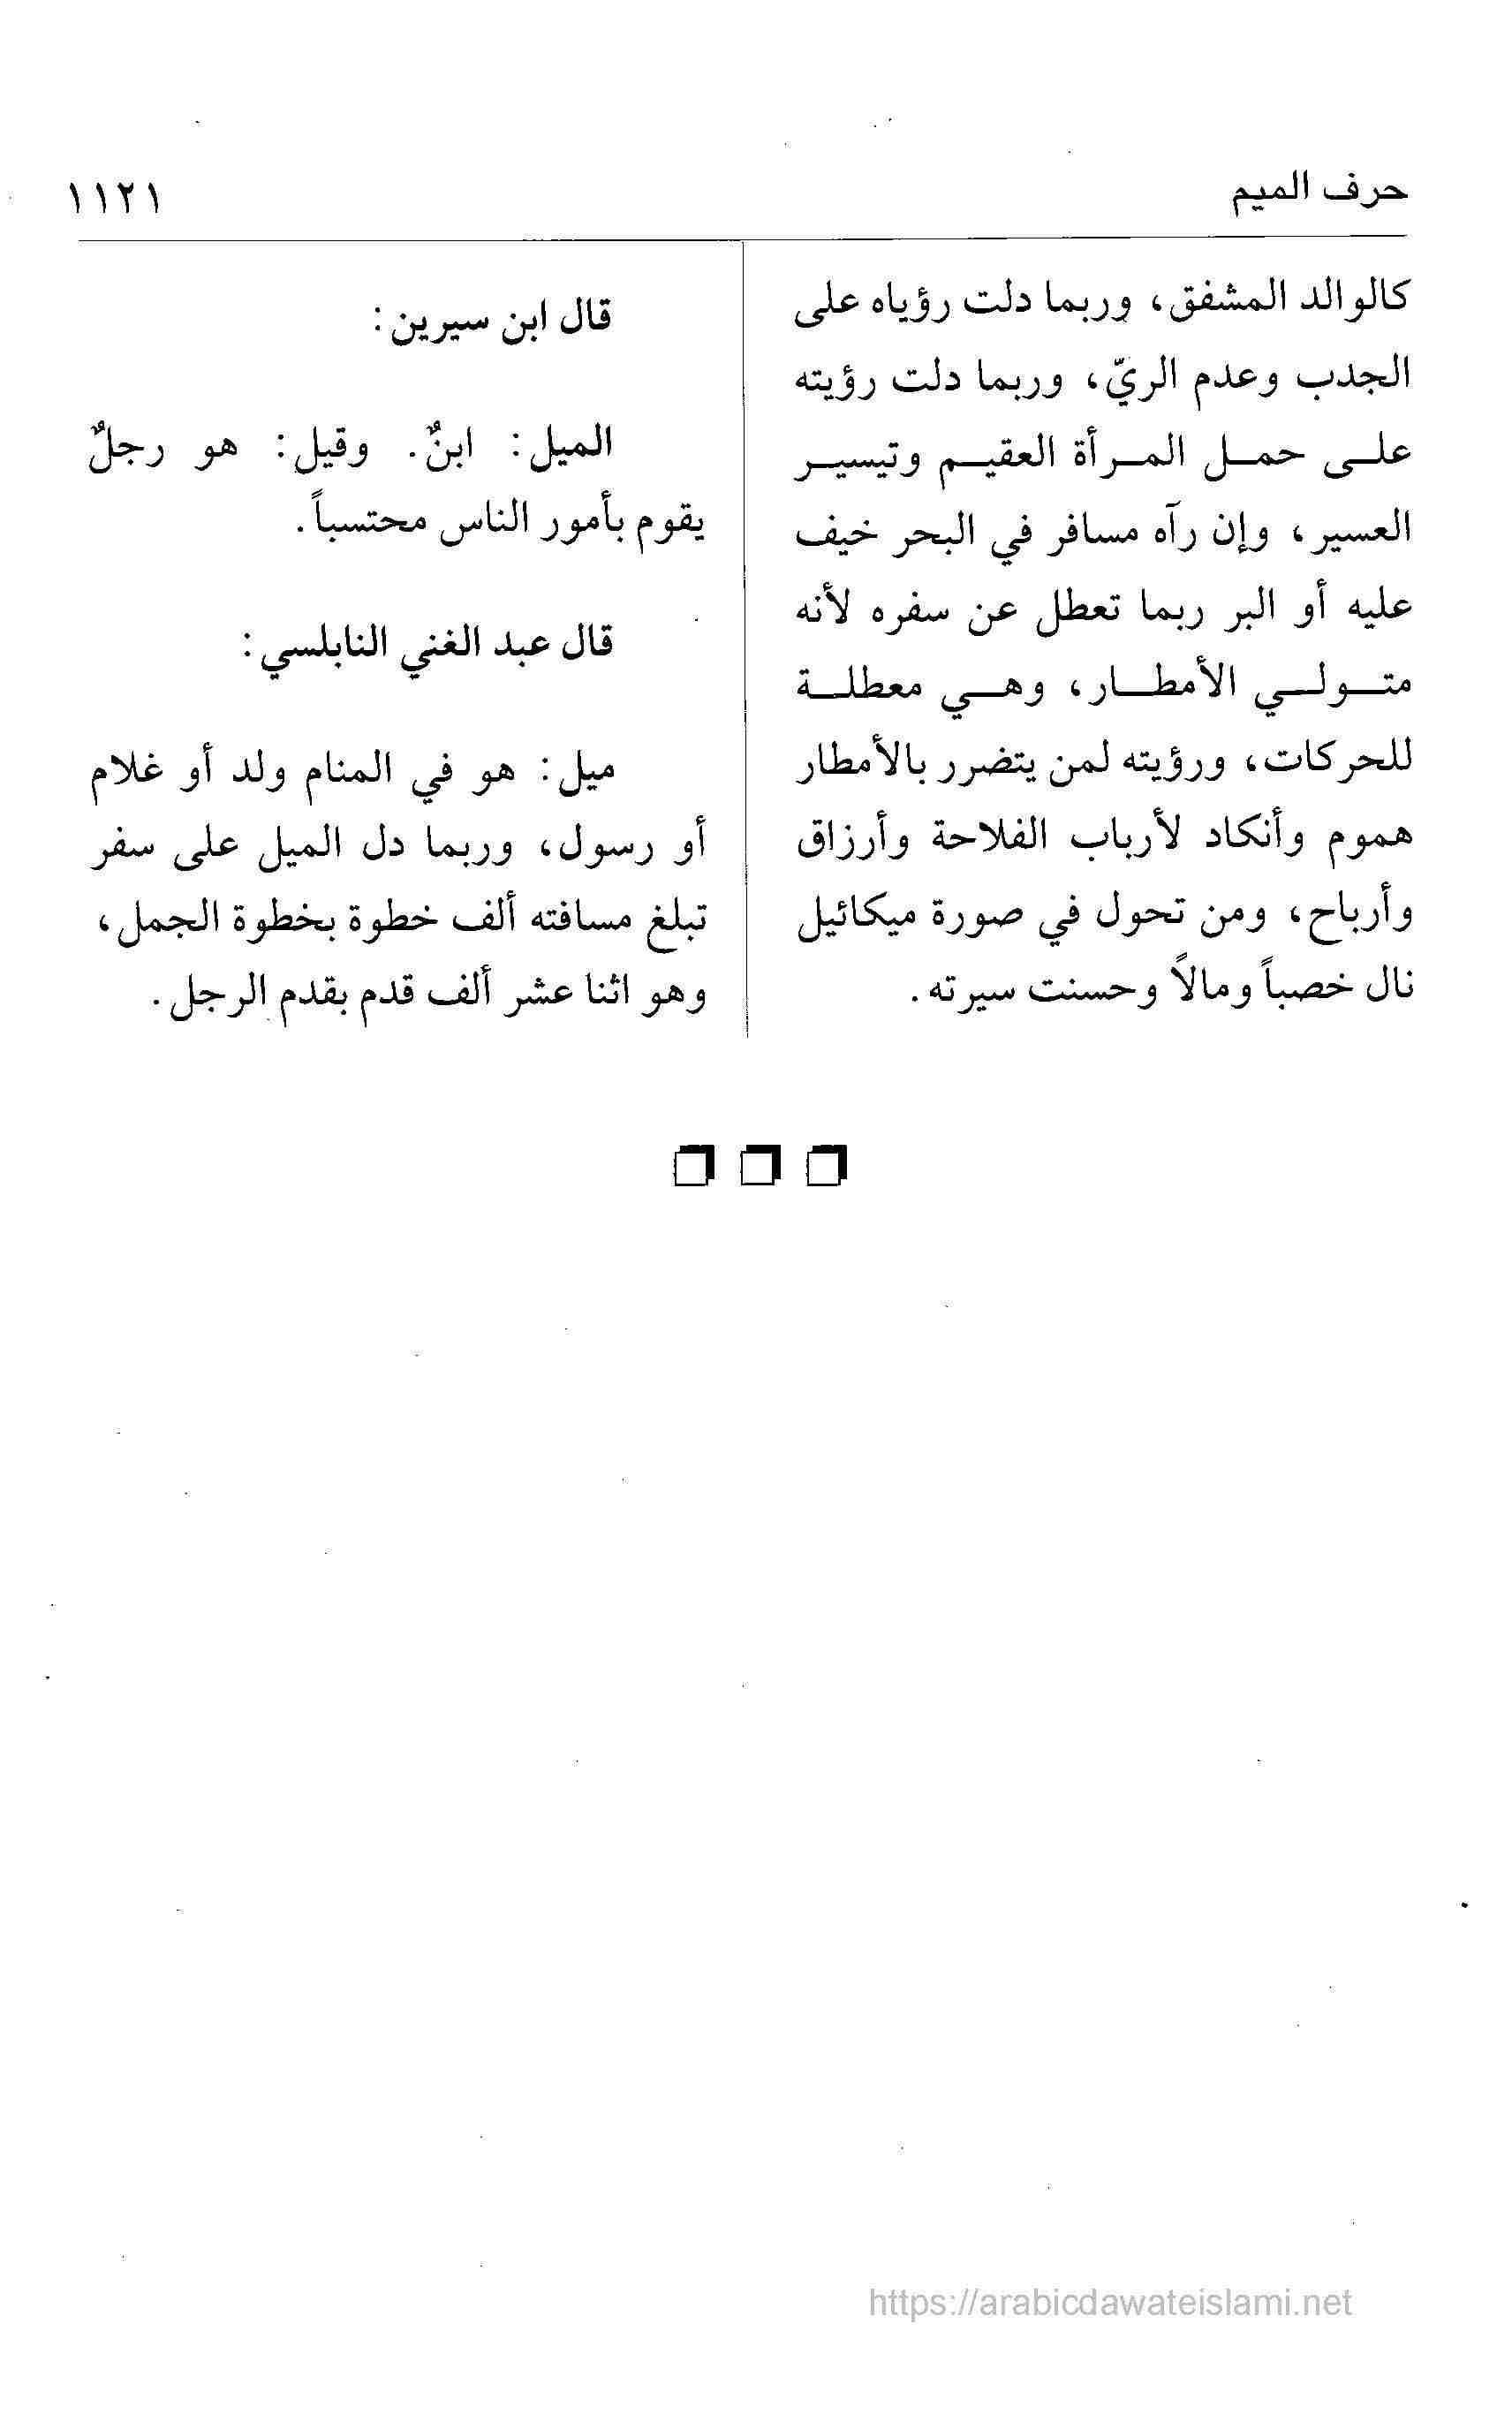 حرف الميم
١١٢١
كالوالد المشفق، وربما دلت رؤياه على
الجدب وعدم الريّ، وربما دلت رؤيته
علـى حمـل المـرأة العقيـم وتيسيـر
العسير، وإن رآه مسافر في البحر خيف
عليه أو البر ربما تعطل عن سفره لأنه
متـولـي الأمطـار، وهـي معطلـة
للحركات، ورؤيته لمن يتضرر بالأمطار
هموم وأنكاد لأرباب الفلاحة وأرزاق
وأرباح، ومن تحول في صورة ميكائيل
نال خصباً ومالاً وحسنت سيرته.
قال ابن سيرين:
الميل: ابنٌ. وقيل: هو رجلٌ
يقوم بأمور الناس محتسباً.
قال عبد الغني النابلسي:
ميل: هو في المنام ولد أو غلام
أو رسول، وربما دل الميل على سفر
تبلغ مسافته ألف خطوة بخطوة الجمل،
وهو اثنا عشر ألف قدم بقدم الرجل.
https://arabicdawateislami.net